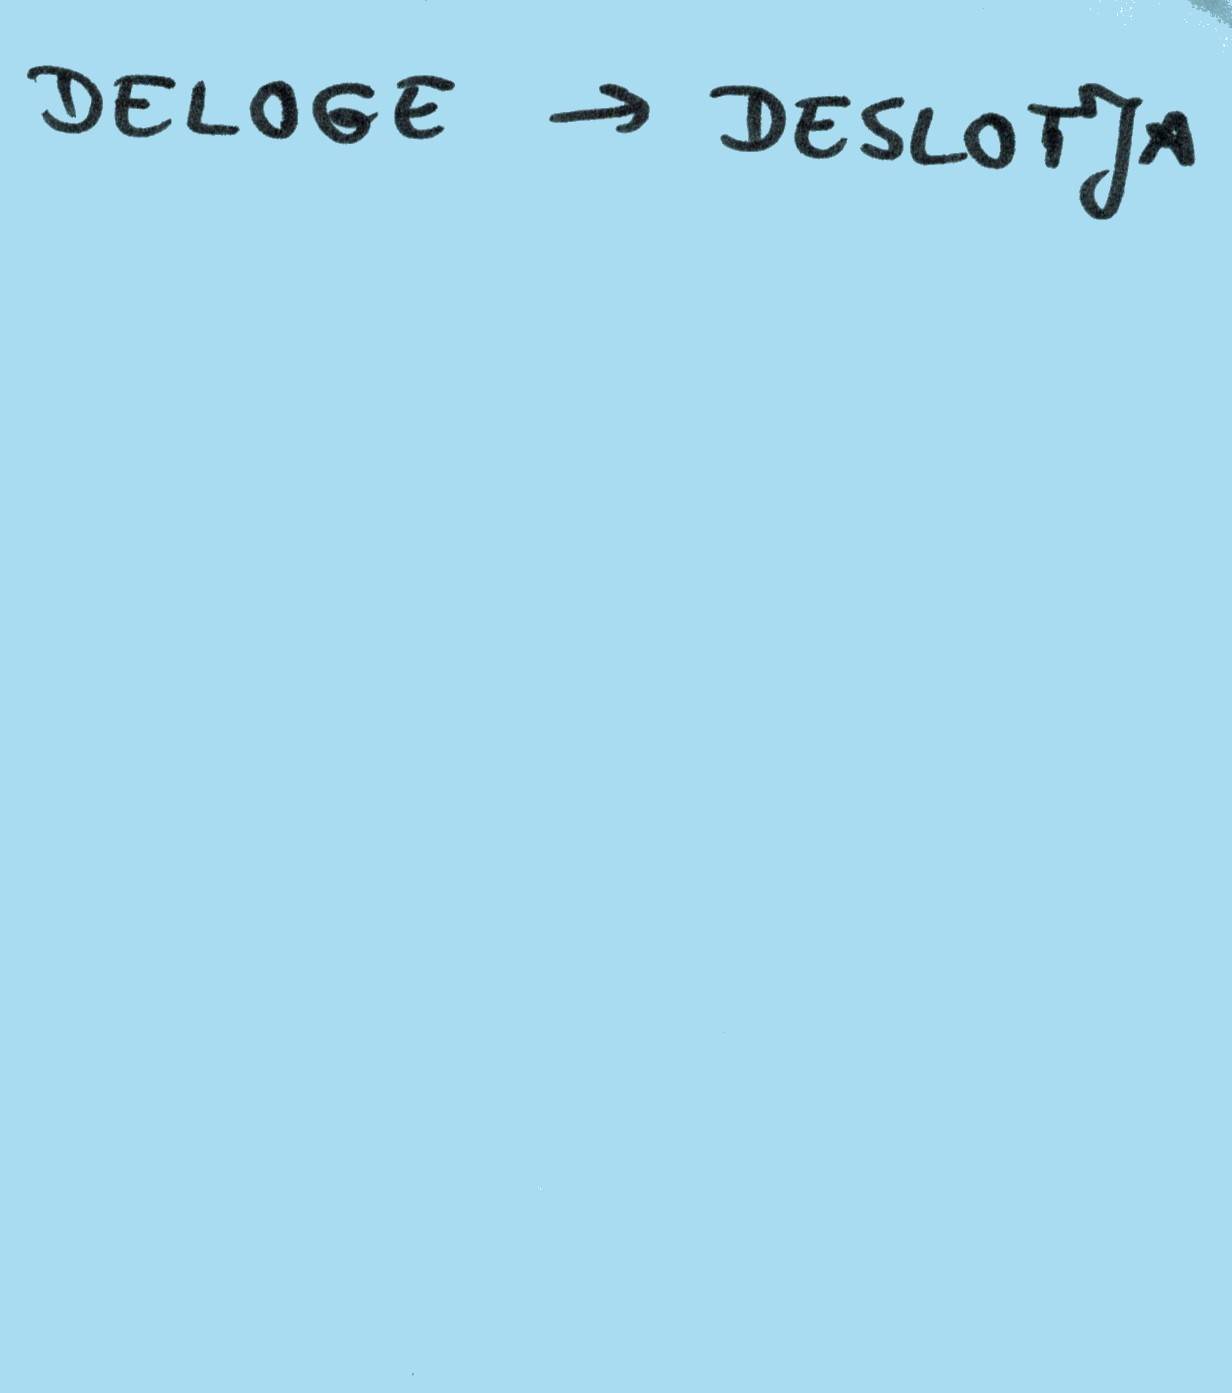 DELOGE → DESLOTJA